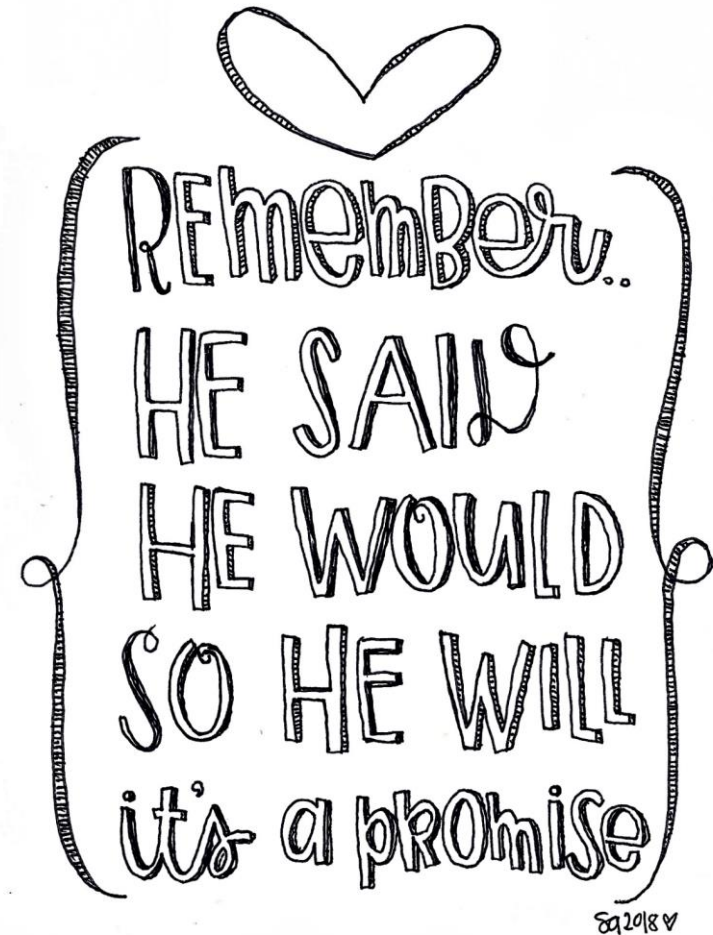 REmemBer..
HE SAID
HE WOULD
SO HE WILL
it's a pROmiSe
sg 2018